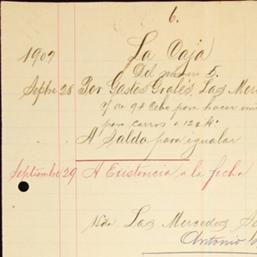 6.
1907 La Caja
Del 5.
Septbre 28 Por Gastos Grales, Las Mer
de para hacer
para carros a
A Saldo para igualar
Septiembre 29 A Existencia a la fecha
Las Mercedes Se
Antonio